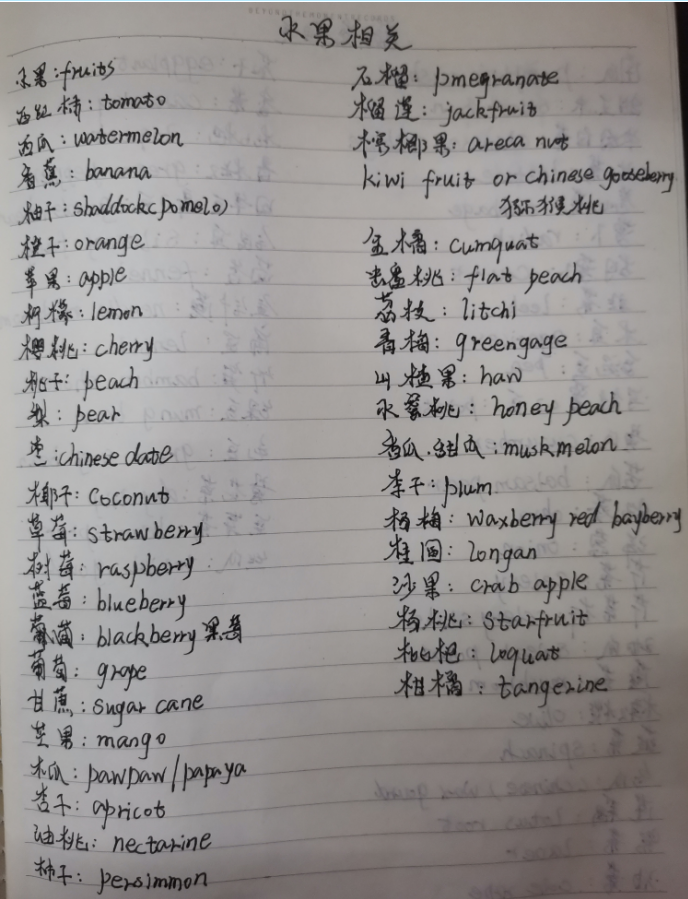 水果相关
水果:fruits
西红柿:tomato
西瓜:watermelon
香蕉:banana
柚子:shaddock(pomelo)
橙子:orange
苹果:apple
柠檬:lemon
樱桃:cherry
桃子:peach
梨:pear
枣:chinese date
椰子:coconut
草莓:strawberry
树莓:raspberry
蓝莓:blueberry
blackberry 黑莓
葡萄:grape
甘蔗:sugar cane
芒果:mango
木瓜:pawpaw/papaya
杏子:apricot
油桃:nectarine
柿子:persimmon
石榴:pmegranate
榴莲:jackfruit
槟榔果:areca nut
kiwi fruit or chinese gooseberry
猕猴桃
金橘:cumquat
蟠桃:flat peach
荔枝:litchi
青梅:greengage
山楂果:haw
水蜜桃:honey peach
香瓜,甜瓜:muskmelon
李子:plum
杨梅:waxberry red bayberry
桂圆:longan
沙果:crab apple
杨桃:starfruit
枇杷:loquat
柑橘:tangerine